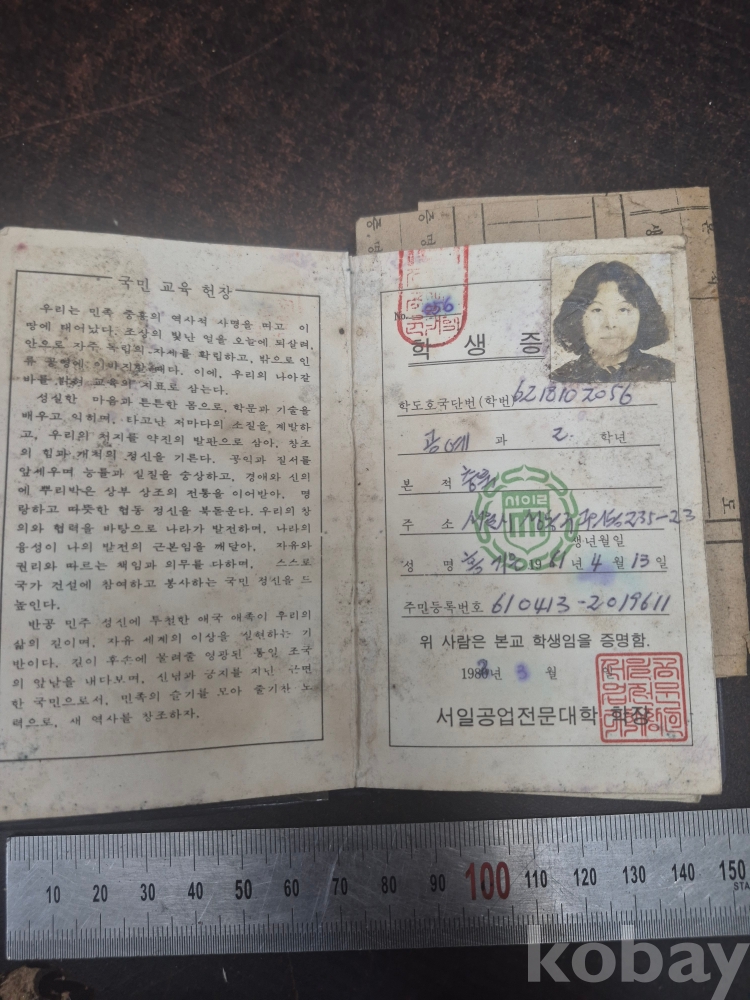 국민 교육 헌장
우리는 민족 중흥의 역사적 사명을 띠고 이
땅에 태어났다. 조상의 빛난 얼을 오늘에 되살려,
안으로 자주 독립의 자세를 확립하고, 밖으로 인
류 공영에 이바지할 때다. 이에, 우리의 나아갈
바를 밝혀 교육의 지표로 삼는다.
성실한 마음과 튼튼한 몸으로, 학문과 기술을
배우고 익히며, 타고난 저마다의 소질을 계발하
고, 우리의 처지를 약진의 발판으로 삼아, 창조
의 힘과 개척의 정신을 기른다. 공익과 질서를
앞세우며 능률과 실질을 숭상하고, 경애와 신의
에 뿌리박은 상부 상조의 전통을 이어받아, 명
랑하고 따뜻한 협동 정신을 북돋운다. 우리의 창
의와 협력을 바탕으로 나라가 발전하며, 나라의
융성이 나의 발전의 근본임을 깨달아, 자유와
권리와 따르는 책임과 의무를 다하며, 스스로
국가 건설에 참여하고 봉사하는 국민 정신을 드
높인다.
반공 민주 정신에 투철한 애국 애족이 우리의
삶의 길이며, 자유 세계의 이상을 실현하는 기
반이다. 길이 후손에 물려줄 영광된 통일 조국
의 앞날을 내다보며, 신념과 긍지를 지닌 근면
한 국민으로서, 민족의 슬기를 모아 줄기찬 노
력으로, 새 역사를 창조하자.
No. 056
학 생 증
학도호국단번(학번) 6218107056
공예 과 2 학년
본 적
서일
주 소 235-23
생년월일
성 명 1961년 4월 13일
주민등록번호 610413-2019611
위 사람은 본교 학생임을 증명함.
198 년 3 월
서일공업전문대학 학장
10 20 30 40 50 60 70 80 90 100 110 120 130 140 150
STA
kobay